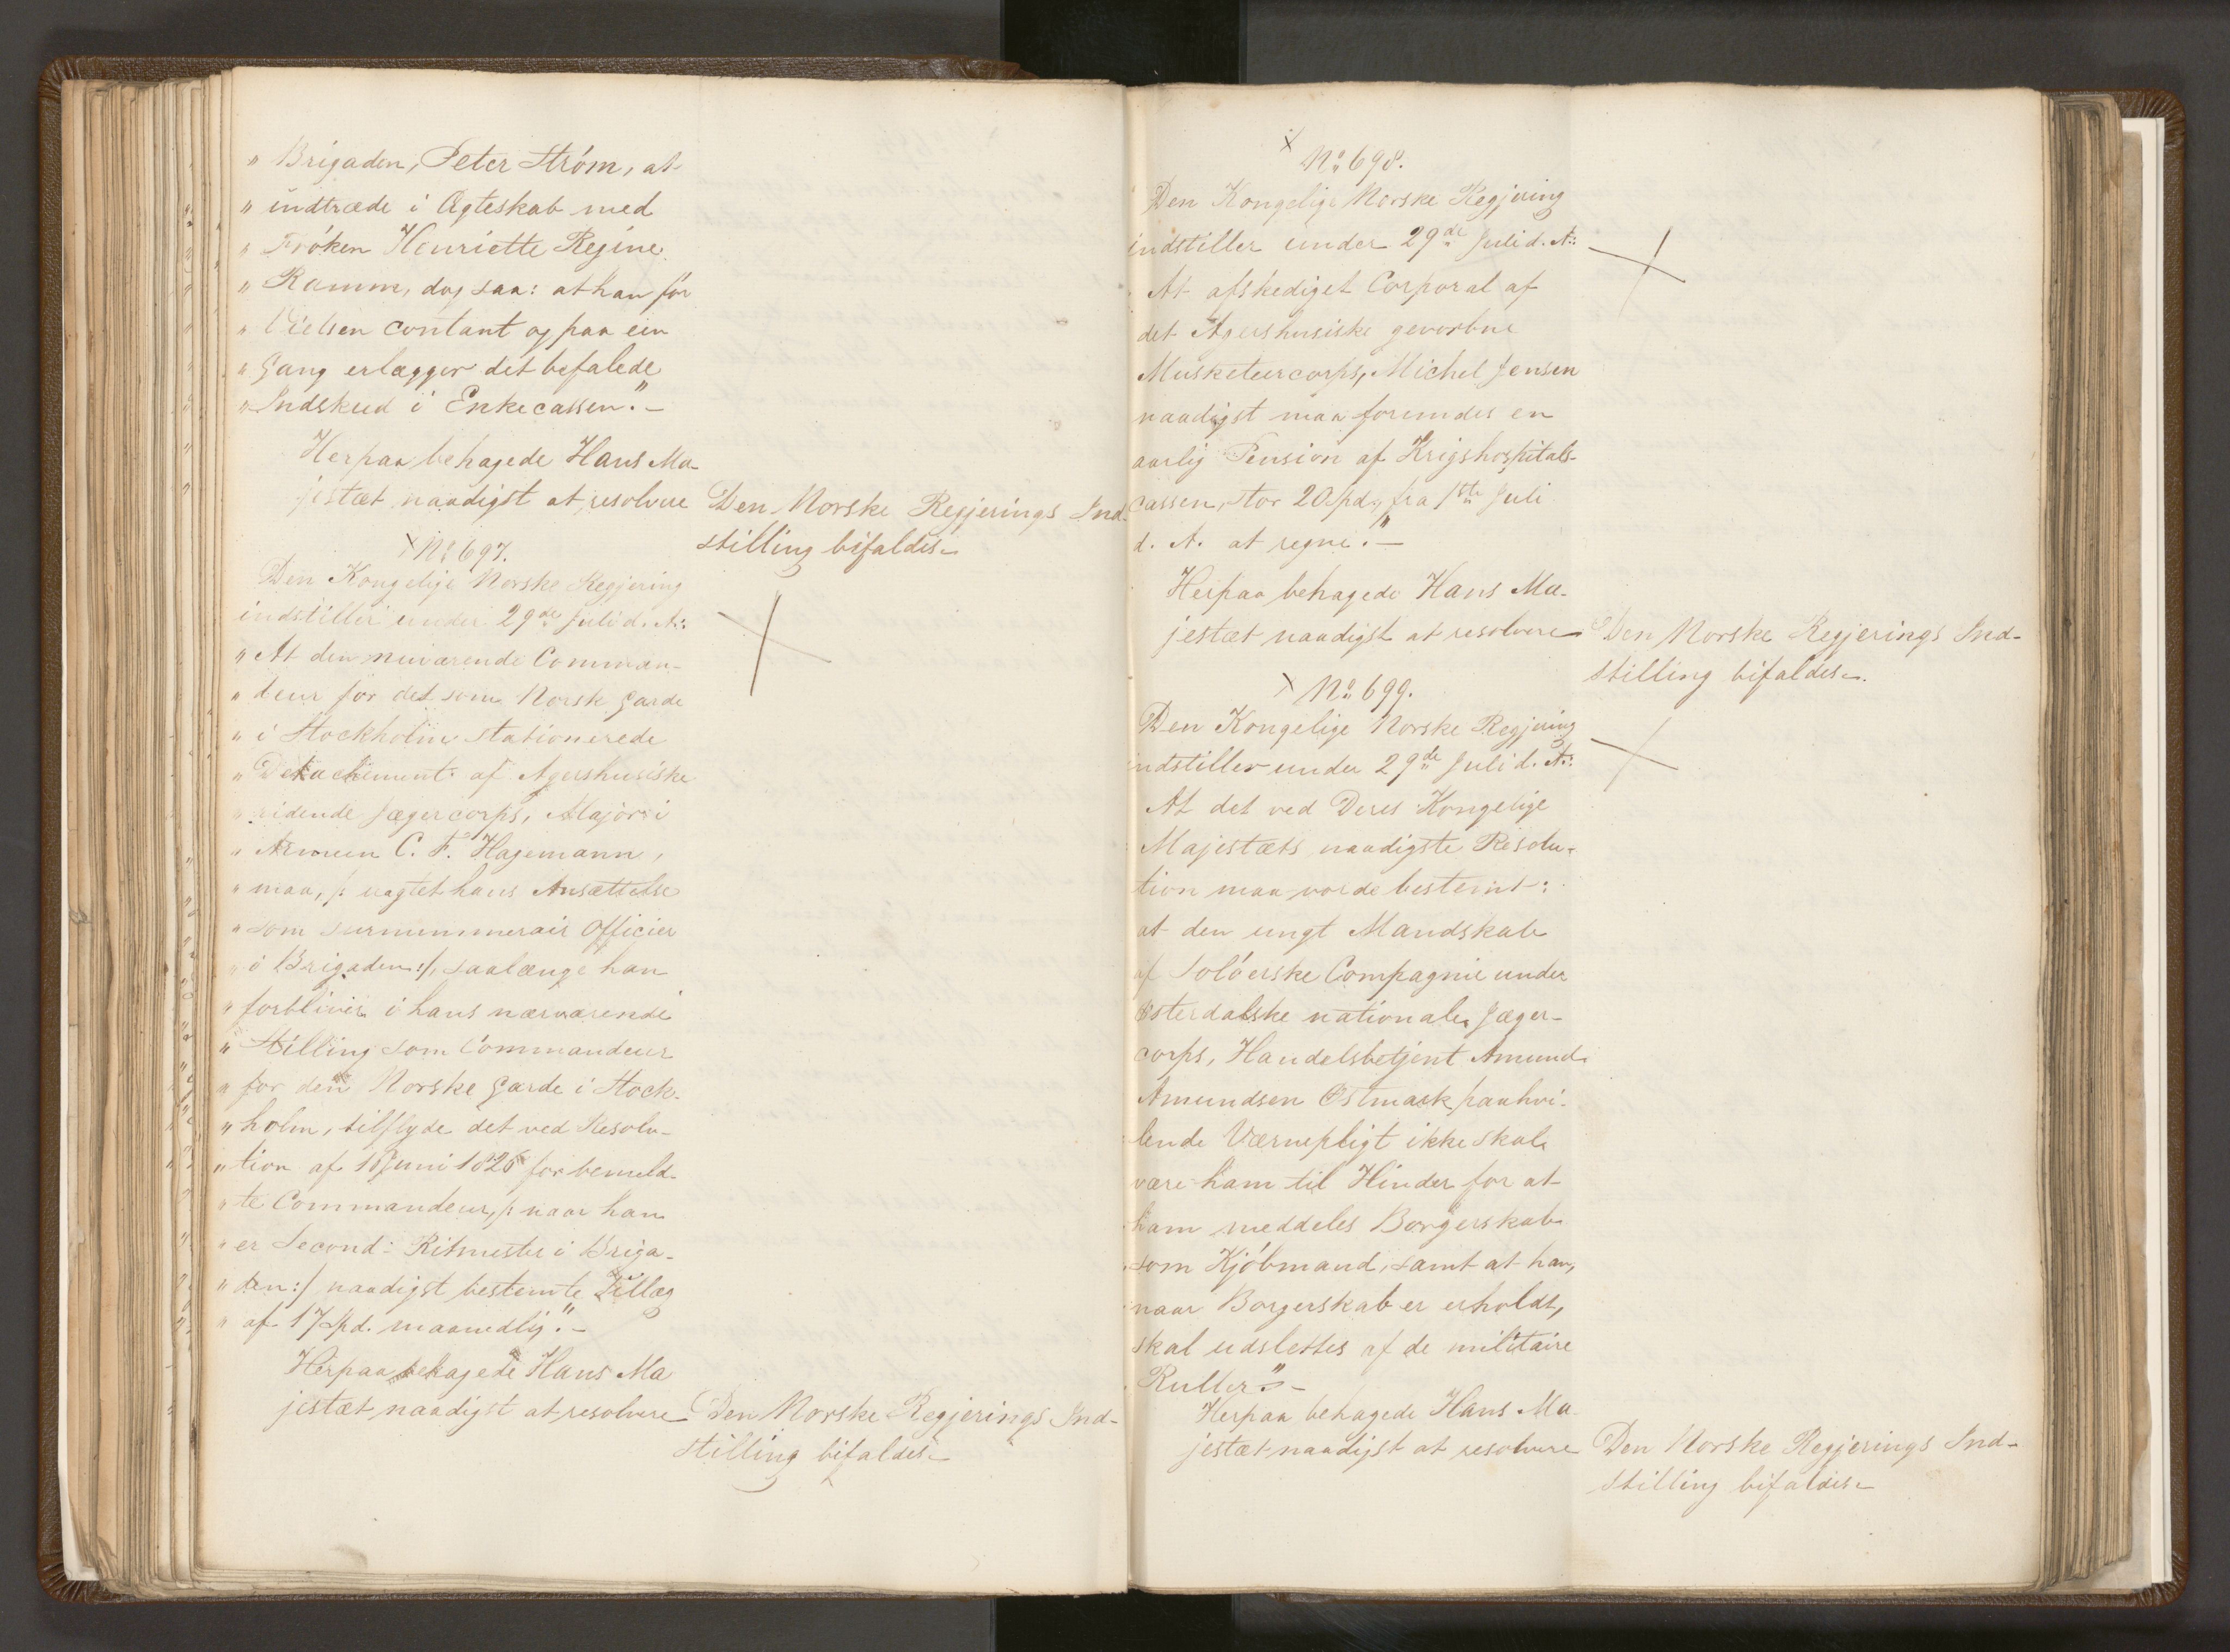 " Brigaden, Peter Strøm, at
" indtræde i Ægteskab med
" Frøken Henriette Regine
" Ramm, dog saa: at han før
" Vielsen contant og paa een
" Gang erlægger det befalede
" Indskud i Enkecassen." -
Herpaa behagede Hans Ma-
jestæt naadigst at resolvere
Den Norske Regjerings Ind-
stilling bifaldes.
No 697.
Den Kongelige Norske Regjering
indstiller under 29de Juli d. A.:
" At den nuværende Comman-
" deur for det som Norsk Garde
" i Stockholm stationerede
" Detachement af Agershusiske
" ridende Jægercorps, Major i
" Armeen C. F. Hagemann,
" maa, /: uagtet hans Ansættelse
" som surnummerair Officier
" i Brigaden :/, saalænge han
" forbliver i hans nærværende
" Stilling som Commandeur
" for den Norske Garde i Stock-
" holm, tilflyde det ved Resolu-
" tion af 18 Juni 1826 for bemeld-
" te Commandeur, /: naar han
" er Second-Ritmester i Briga-
" den :/ naadigst bestemte Tillæg
" af 17 Spd. maanedlig." -
Herpaa behagede Hans Ma
jestæt naadigst at resolvere
Den Norske Regjerings Ind-
stilling bifaldes.
No 698.
Den Kongelige Norske Regjering
indstiller under 29de Juli d. A.:
At afskediget Corporal af
det Agershusiske gevorbne
Musketeercorps, Michel Jensen
naadigst maa forundes en
aarlig Pension af Krigshospitals-
cassen, stor 20 spd., fra 1ste Juli
d. A. at regne." -
Herpaa behagede Hans Ma-
jestæt naadigst at resolvere
Den Norske Regjerings Ind-
stilling bifaldes.
No 699.
Den Kongelige Norske Regjering
indstiller under 29de Juli d. A.:
At det ved Deres Kongelige
Majestæts naadigste Resolu-
tion maa vorde bestemt:
at den ungt Mandskab
af Soløerske Compagnie under
Østerdalske nationale Jæger-
corps, Handelsbetjent Amund
Amundsen Østmark paahvi-
lende Værnepligt ikke skal
være ham til Hinder for at
ham meddeles Borgerskab
som Kjøbmand, samt at han,
naar Borgerskab er erholdt,
skal udslettes af de militaire
Ruller." -
Herpaa behagede Hans Ma-
jestæt naadigst at resolvere
Den Norske Regjerings Ind-
stilling bifaldes.